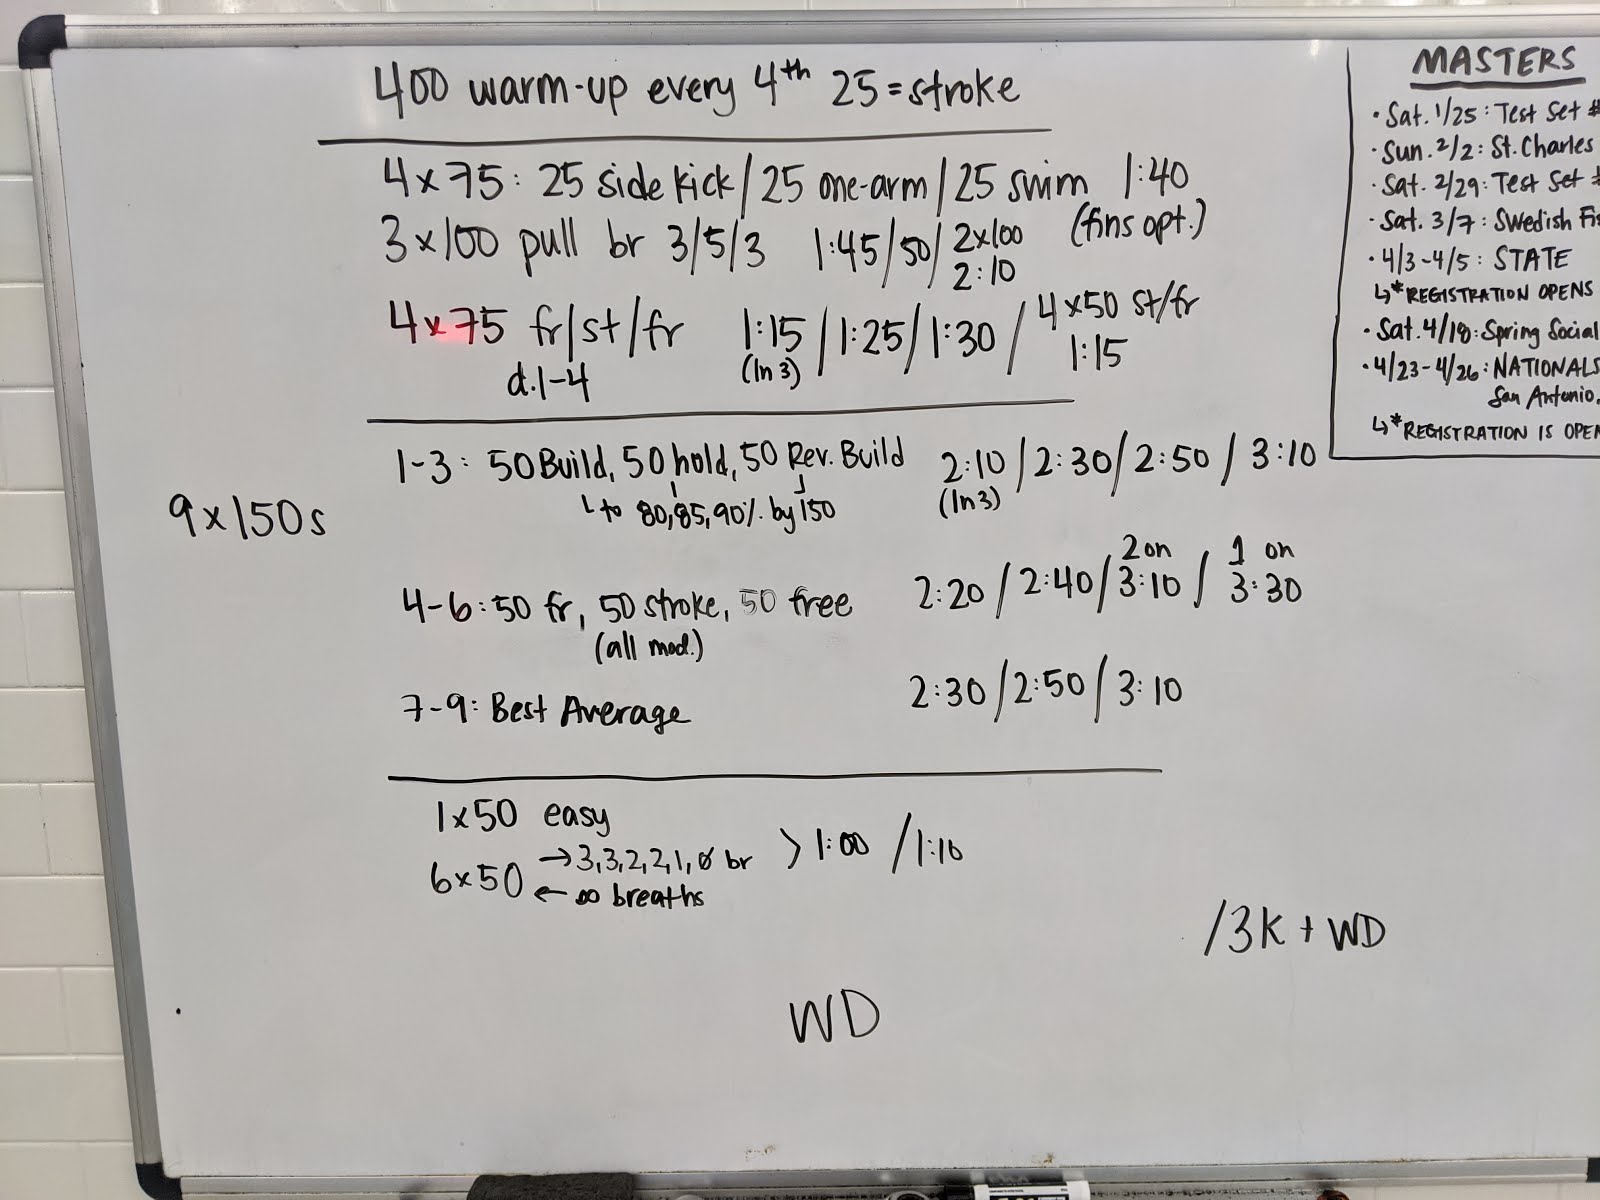 400 warm-up every 4th 25 = stroke
4 x 75: 25 side kick / 25 one-arm / 25 swim 1:40
(fins opt.)
3 x 100 pull br 3/5/3 1:45/50/ 2x100
2:10
4 x 75 fr/st/fr 1:15 / 1:25 / 1:30 / 4 x 50 st/fr
d.1-4 (ln 3) 1:15
9 x 150s
1-3: 50 Build, 50 hold, 50 Rev. Build 2:10 / 2:30 / 2:50 / 3:10
↳ to 80, 85, 90% by 150 (ln 3)
2 on 1 on
4-6: 50 fr, 50 stroke, 50 free 2:20 / 2:40 / 3:10 / 3:30
(all mod.)
7-9: Best Average 2:30 / 2:50 / 3:10
1 x 50 easy
6 x 50 → 3,3,2,2,1,0 br > 1:00 / 1:10
← ∞ breaths
/3K + WD
WD
MASTERS
• Sat. 1/25: Test Set #
• Sun. 2/2: St. Charles
• Sat. 2/29: Test Set #
• Sat. 3/7: Swedish Fis
• 4/3-4/5: STATE
↳ *REGISTRATION OPENS
• Sat. 4/18: Spring Social
• 4/23-4/26: NATIONALS
San Antonio,
↳ *REGISTRATION IS OPEN